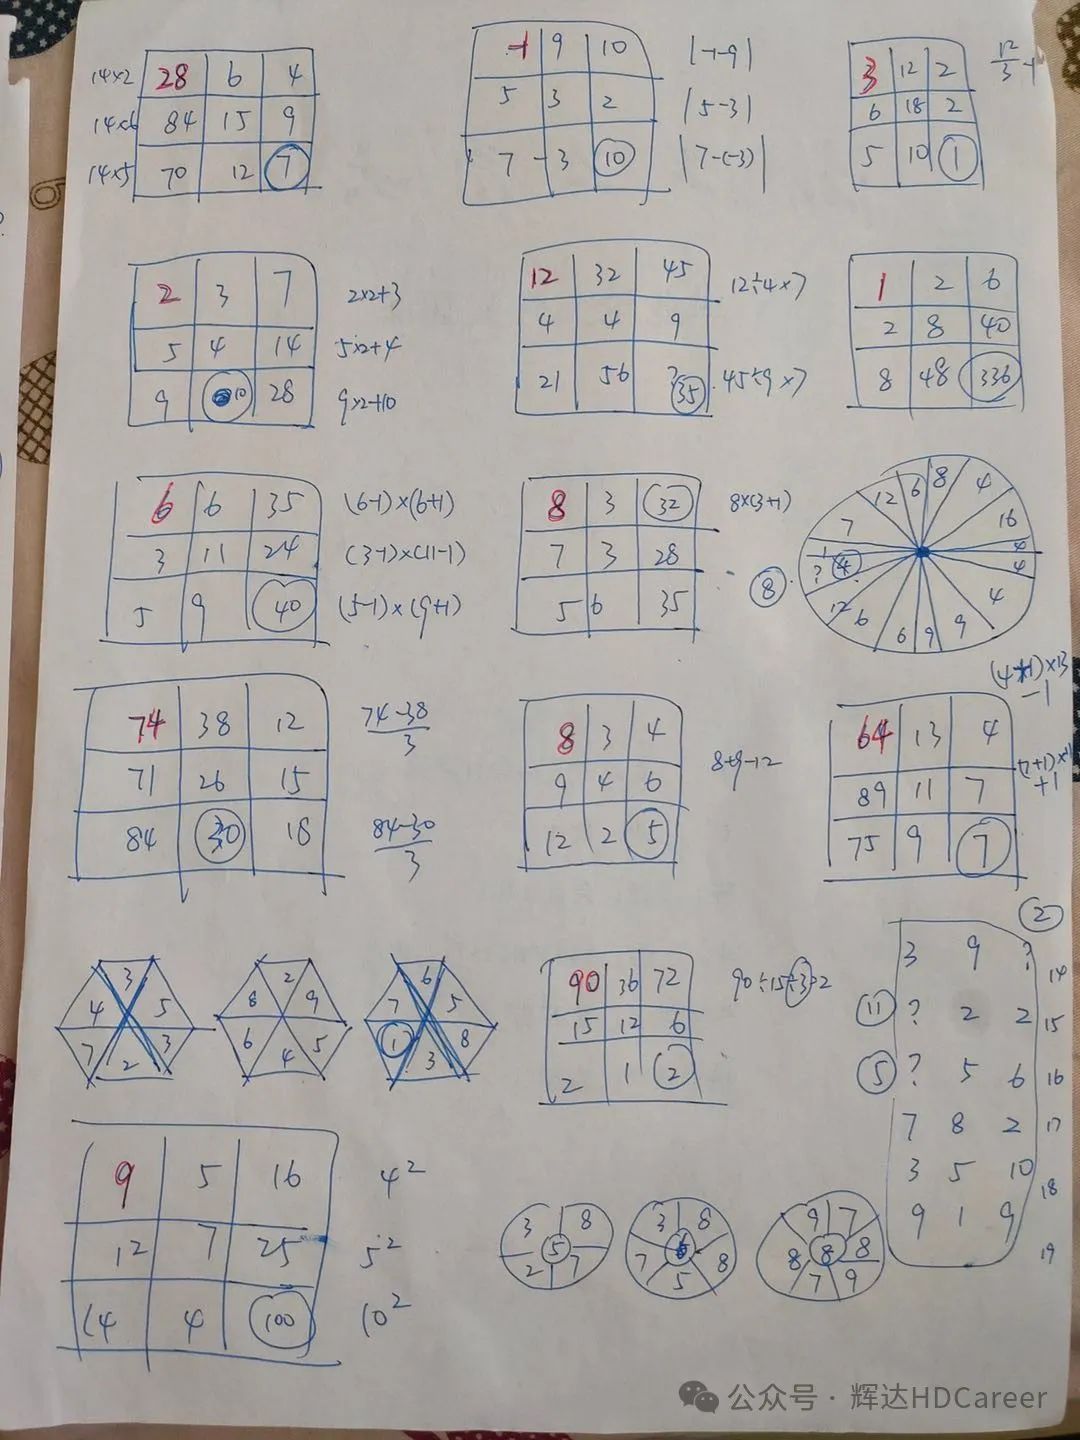 14×2 28 6 4
14×6 84 15 9
14×5 70 12 7
-1 9 10 |-1-9|
5 3 2 |5-3|
7 -3 10 |7-(-3)|
3 12 2 12/3 -1
6 18 2
5 10 1
2 3 7 2×2+3
5 4 14 5×2+4
9 10 28 9×2+10
12 32 45 12÷4×7
4 4 9
21 56 ? 35 45÷9×7
1 2 6
2 8 40
8 48 336
6 6 35 (6-1)×(6+1)
3 11 24 (3-1)×(11-1)
5 9 40 (5-1)×(9+1)
8 3 32 8×(3+1)
7 3 28
5 6 35
8
7 12 6 8 4 16 4
1
? 4 12 6 6 9 9 4 4
74 38 12 74-38/3
71 26 15
84 30 18 84-30/3
8 3 4
9 4 6 8+9-12
12 2 5
(4+1)×13
-1
64 13 4
89 11 7
+1
75 9 7
3
4 5
7 3
2
2
8 9
6 5
4
6
7 5
1 8
3
90 36 72 90÷15÷3=2
15 12 6
2 1 2
2
3 9 ? 14
11 ? 2 2 15
5 ? 5 6 16
7 8 2 17
3 5 10 18
9 1 9 19
9 5 16 4²
12 7 25 5²
14 4 100 10²
3 8
5
2 7
3 8
7 8
5
9 7
8 8 8
7 9
公众号 · 辉达HDCareer